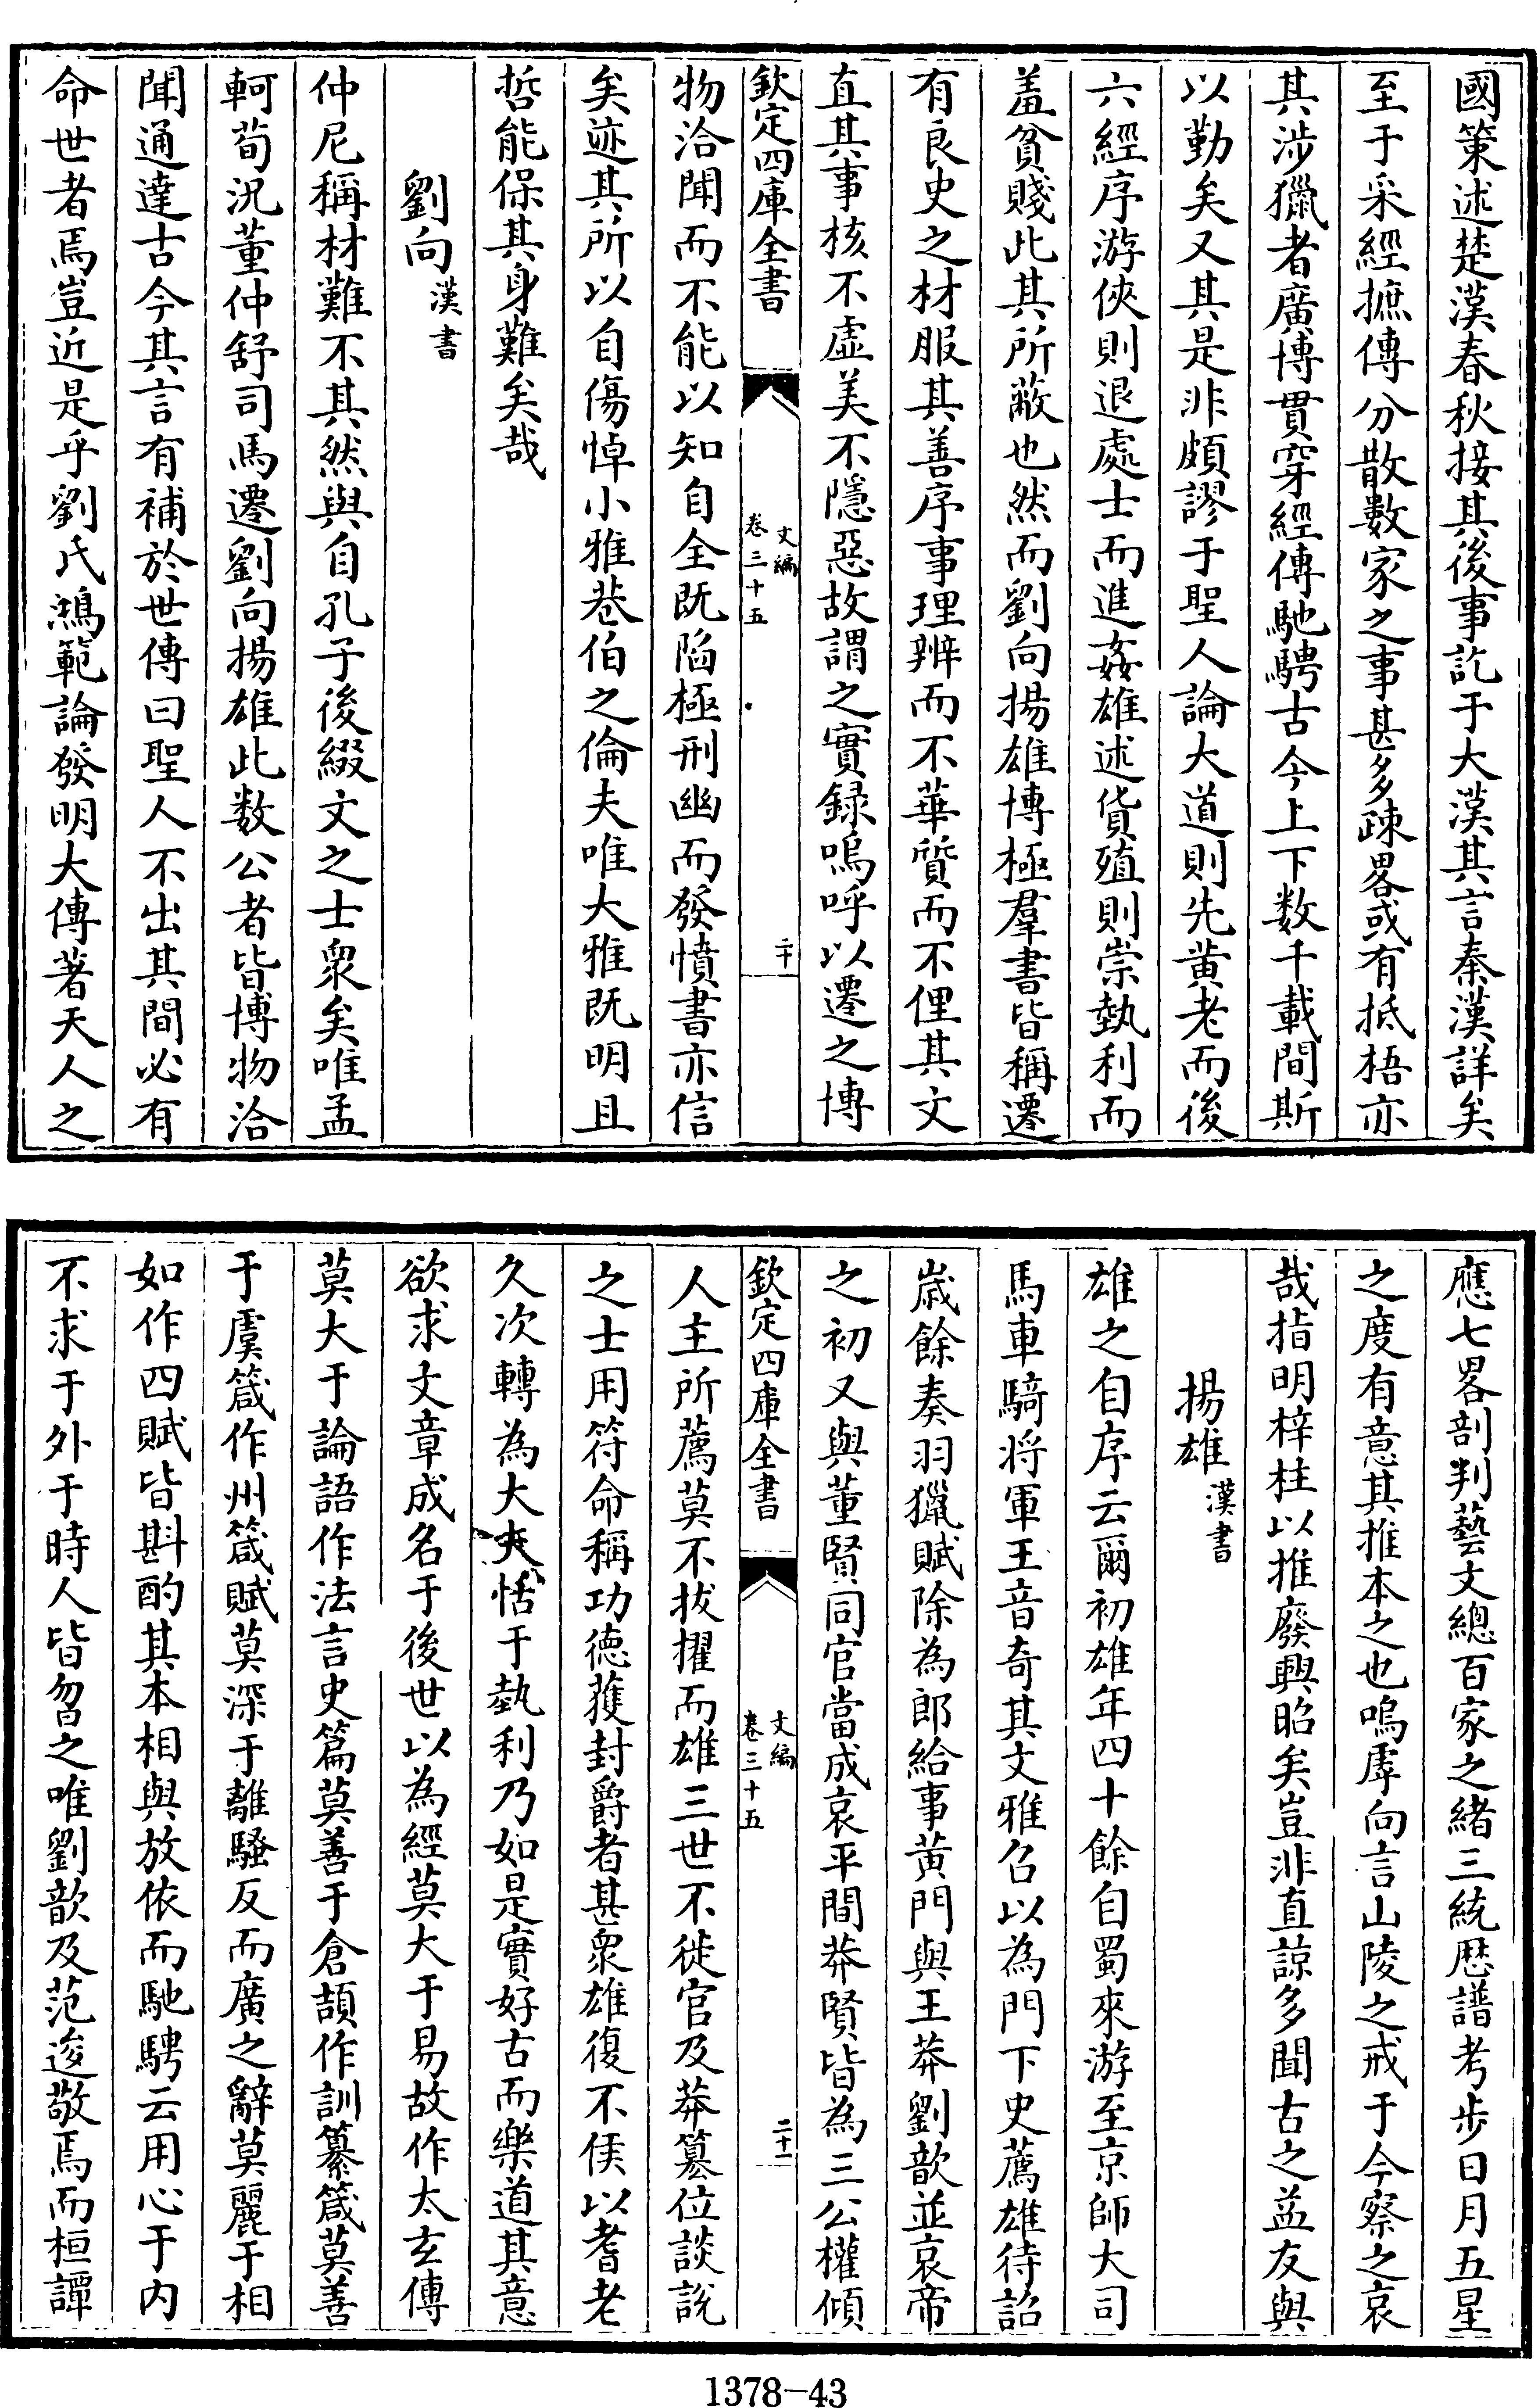 國策述楚漢春秋接其後事訖于大漢其言秦漢詳矣
至于采經摭傳分散數家之事甚多疎畧或有抵梧亦
其涉獵者廣博貫穿經傳馳騁古今上下数千載間斯
以勤矣又其是非頗謬于聖人論大道則先黄老而後
六經序游俠則退處士而進姦雄述貨殖則崇執利而
羞貧賤此其所蔽也然而劉向揚雄博極羣書皆稱遷
有良史之材服其善序事理辨而不華質而不俚其文
直其事核不虛美不隱惡故謂之實録嗚呼以遷之博
欽定四庫全書
文編
卷三十五
二十
物洽聞而不能以知自全既陷極刑幽而發憤書亦信
矣迹其所以自傷悼小雅巷伯之倫夫唯大雅既明且
哲能保其身難矣哉
劉向漢書
仲尼稱材難不其然與自孔子後綴文之士衆矣唯孟
軻荀況董仲舒司馬遷劉向揚雄此数公者皆博物洽
聞通達古今其言有補於世傳曰聖人不出其間必有
命世者焉豈近是乎劉氏鴻範論發明大傳著天人之
應七畧剖判藝文總百家之緒三統厯譜考步日月五星
之度有意其推本之也嗚虖向言山陵之戒于今察之哀
哉指明梓柱以推廢興昭矣豈非直諒多聞古之益友與
揚雄漢書
雄之自序云爾初雄年四十餘自蜀來游至京師大司
馬車騎將軍王音奇其文雅召以為門下史薦雄待詔
歳餘奏羽獵賦除為郎給事黄門與王莽劉歆並哀帝
之初又與董賢同官當成哀平間莽賢皆為三公權傾
欽定四庫全書
文編
卷三十五
二十一
人主所薦莫不拔擢而雄三世不徙官及莽簒位談説
之士用符命稱功德獲封爵者甚衆雄復不侯以耆老
久次轉為大夫恬于執利乃如是實好古而樂道其意
欲求文章成名于後世以為經莫大于易故作太玄傳
莫大于論語作法言史篇莫善于倉頡作訓纂箴莫善
于虞箴作州箴賦莫深于離騷反而廣之辭莫麗于相
如作四賦皆斟酌其本相與放依而馳騁云用心于内
不求于外于時人皆曶之唯劉歆及范逡敬焉而桓譚
1378-43